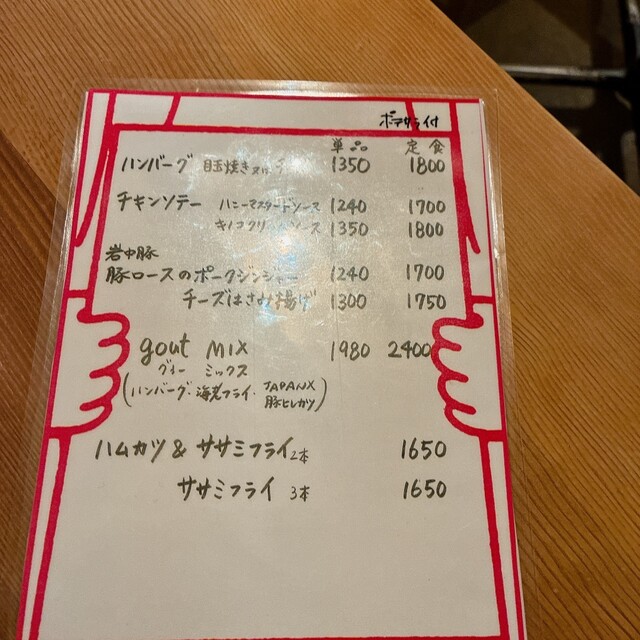 ポテサラ付
単品 定食
ハンバーグ 目玉焼き 1350 1800
チキンソテー ハニーマスタードソース 1240 1700
キノコクリームソース 1350 1800
岩中豚
豚ロースのポークジンジャー 1240 1700
チーズはさみ揚げ 1300 1750
gout MIX 1980 2400
グゥー ミックス
(ハンバーグ・海老フライ・JAPANX
豚ヒレカツ)
ハムカツ & ササミフライ2本 1650
ササミフライ 3本 1650